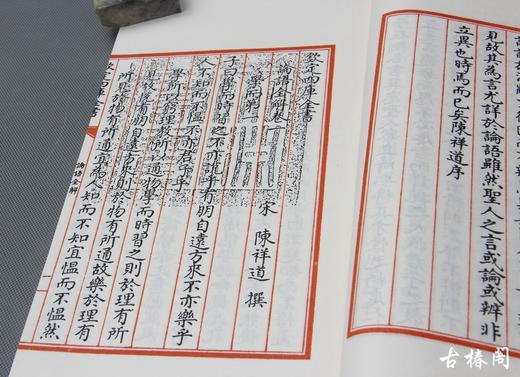 見故其為言尤詳於論語雖然聖人之言或論或辨非
立異也時焉而已矣陳祥道序
欽定四庫全書
論語全解卷一
宋 陳祥道 撰
學而第一
子曰學而時習之不亦說乎有朋自遠方來不亦樂乎
人不知而不慍不亦君子乎
學所以窮理教所以通物學而時習之則於理有所
見故悅有朋自遠方來則於物有所通故樂於理有
所見於物有所通宜為人知而不知宜慍而不慍然
欽定四庫全書
論語全解
古椿閣